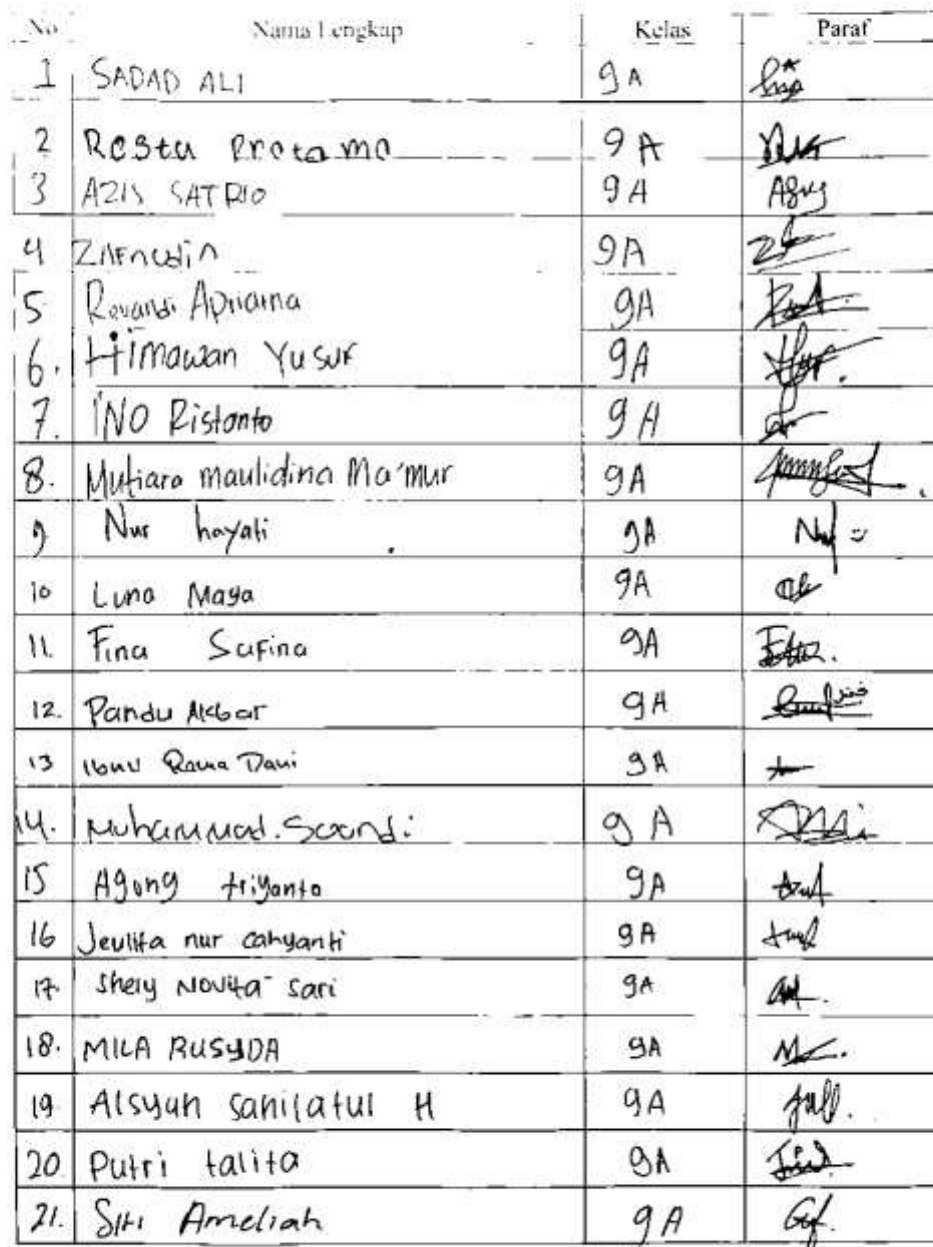 No Nama Lengkap Kelas Paraf
1 SADAD ALI 9A
2 Restu Pratama 9A
3 AZIS SATRIO 9A Agus
4 Zifnudin 9A
5 Revandi Apriana 9A
6. Himawan Yusuf 9A
7. INO Ristanto 9A
8. Mutiara maulidina Ma'mur 9A
9 Nur hayati 9A
10 Luna Maya 9A
11. Fina Safina 9A
12. Pandu Akbar 9A
13 Ibnu Rama Dani 9A
14. Muhammad. Soandi 9A
15 Agong triyanto 9A
16 Jeulita nur cahyanti 9A
17. Shely Novita sari 9A
18. MILA RUSYDA 9A
19. Aisyah sanilatul H 9A
20. Putri talita 9A
21. Siti Ameliah 9A